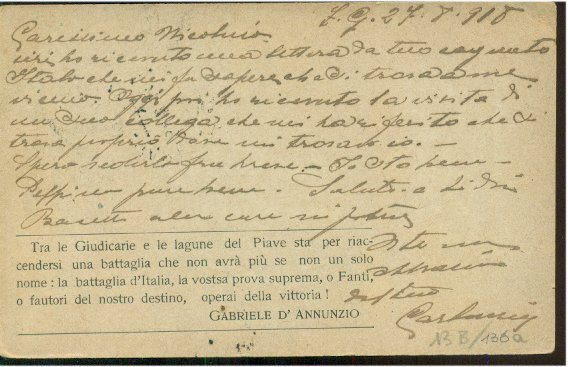 Z. G. 27. 8. 918
Carissimo
ieri ho ricevuto una lettera da tuo cognato
Italo che mi fa sapere che si trova a me
vicino. Oggi poi ho ricevuto la visita di
un suo collega che mi ha riferito che si
trova proprio dove mi trovavo io. -
Spero vederlo fra breve. - Io sto bene -
Peppino pure bene. Saluti a
Tra le Giudicarie e le lagune del Piave sta per riac-
cendersi una battaglia che non avrà più se non un solo
nome : la battaglia d'Italia, la vostsa prova suprema, o Fanti,
o fautori del nostro destino, operai della vittoria !
GABRIELE D' ANNUNZIO
A te un
abbraccio
dal tuo
13 B/136a